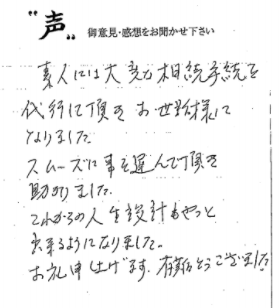 "声" 御意見・感想をお聞かせ下さい
素人には大変な相続手続を
代行して頂き お世話様に
なりました。
スムーズに事を運んで頂き
助かりました。
これからの人生設計もやっと
出来るようになりました。
お礼申し上げます。有難とうございました